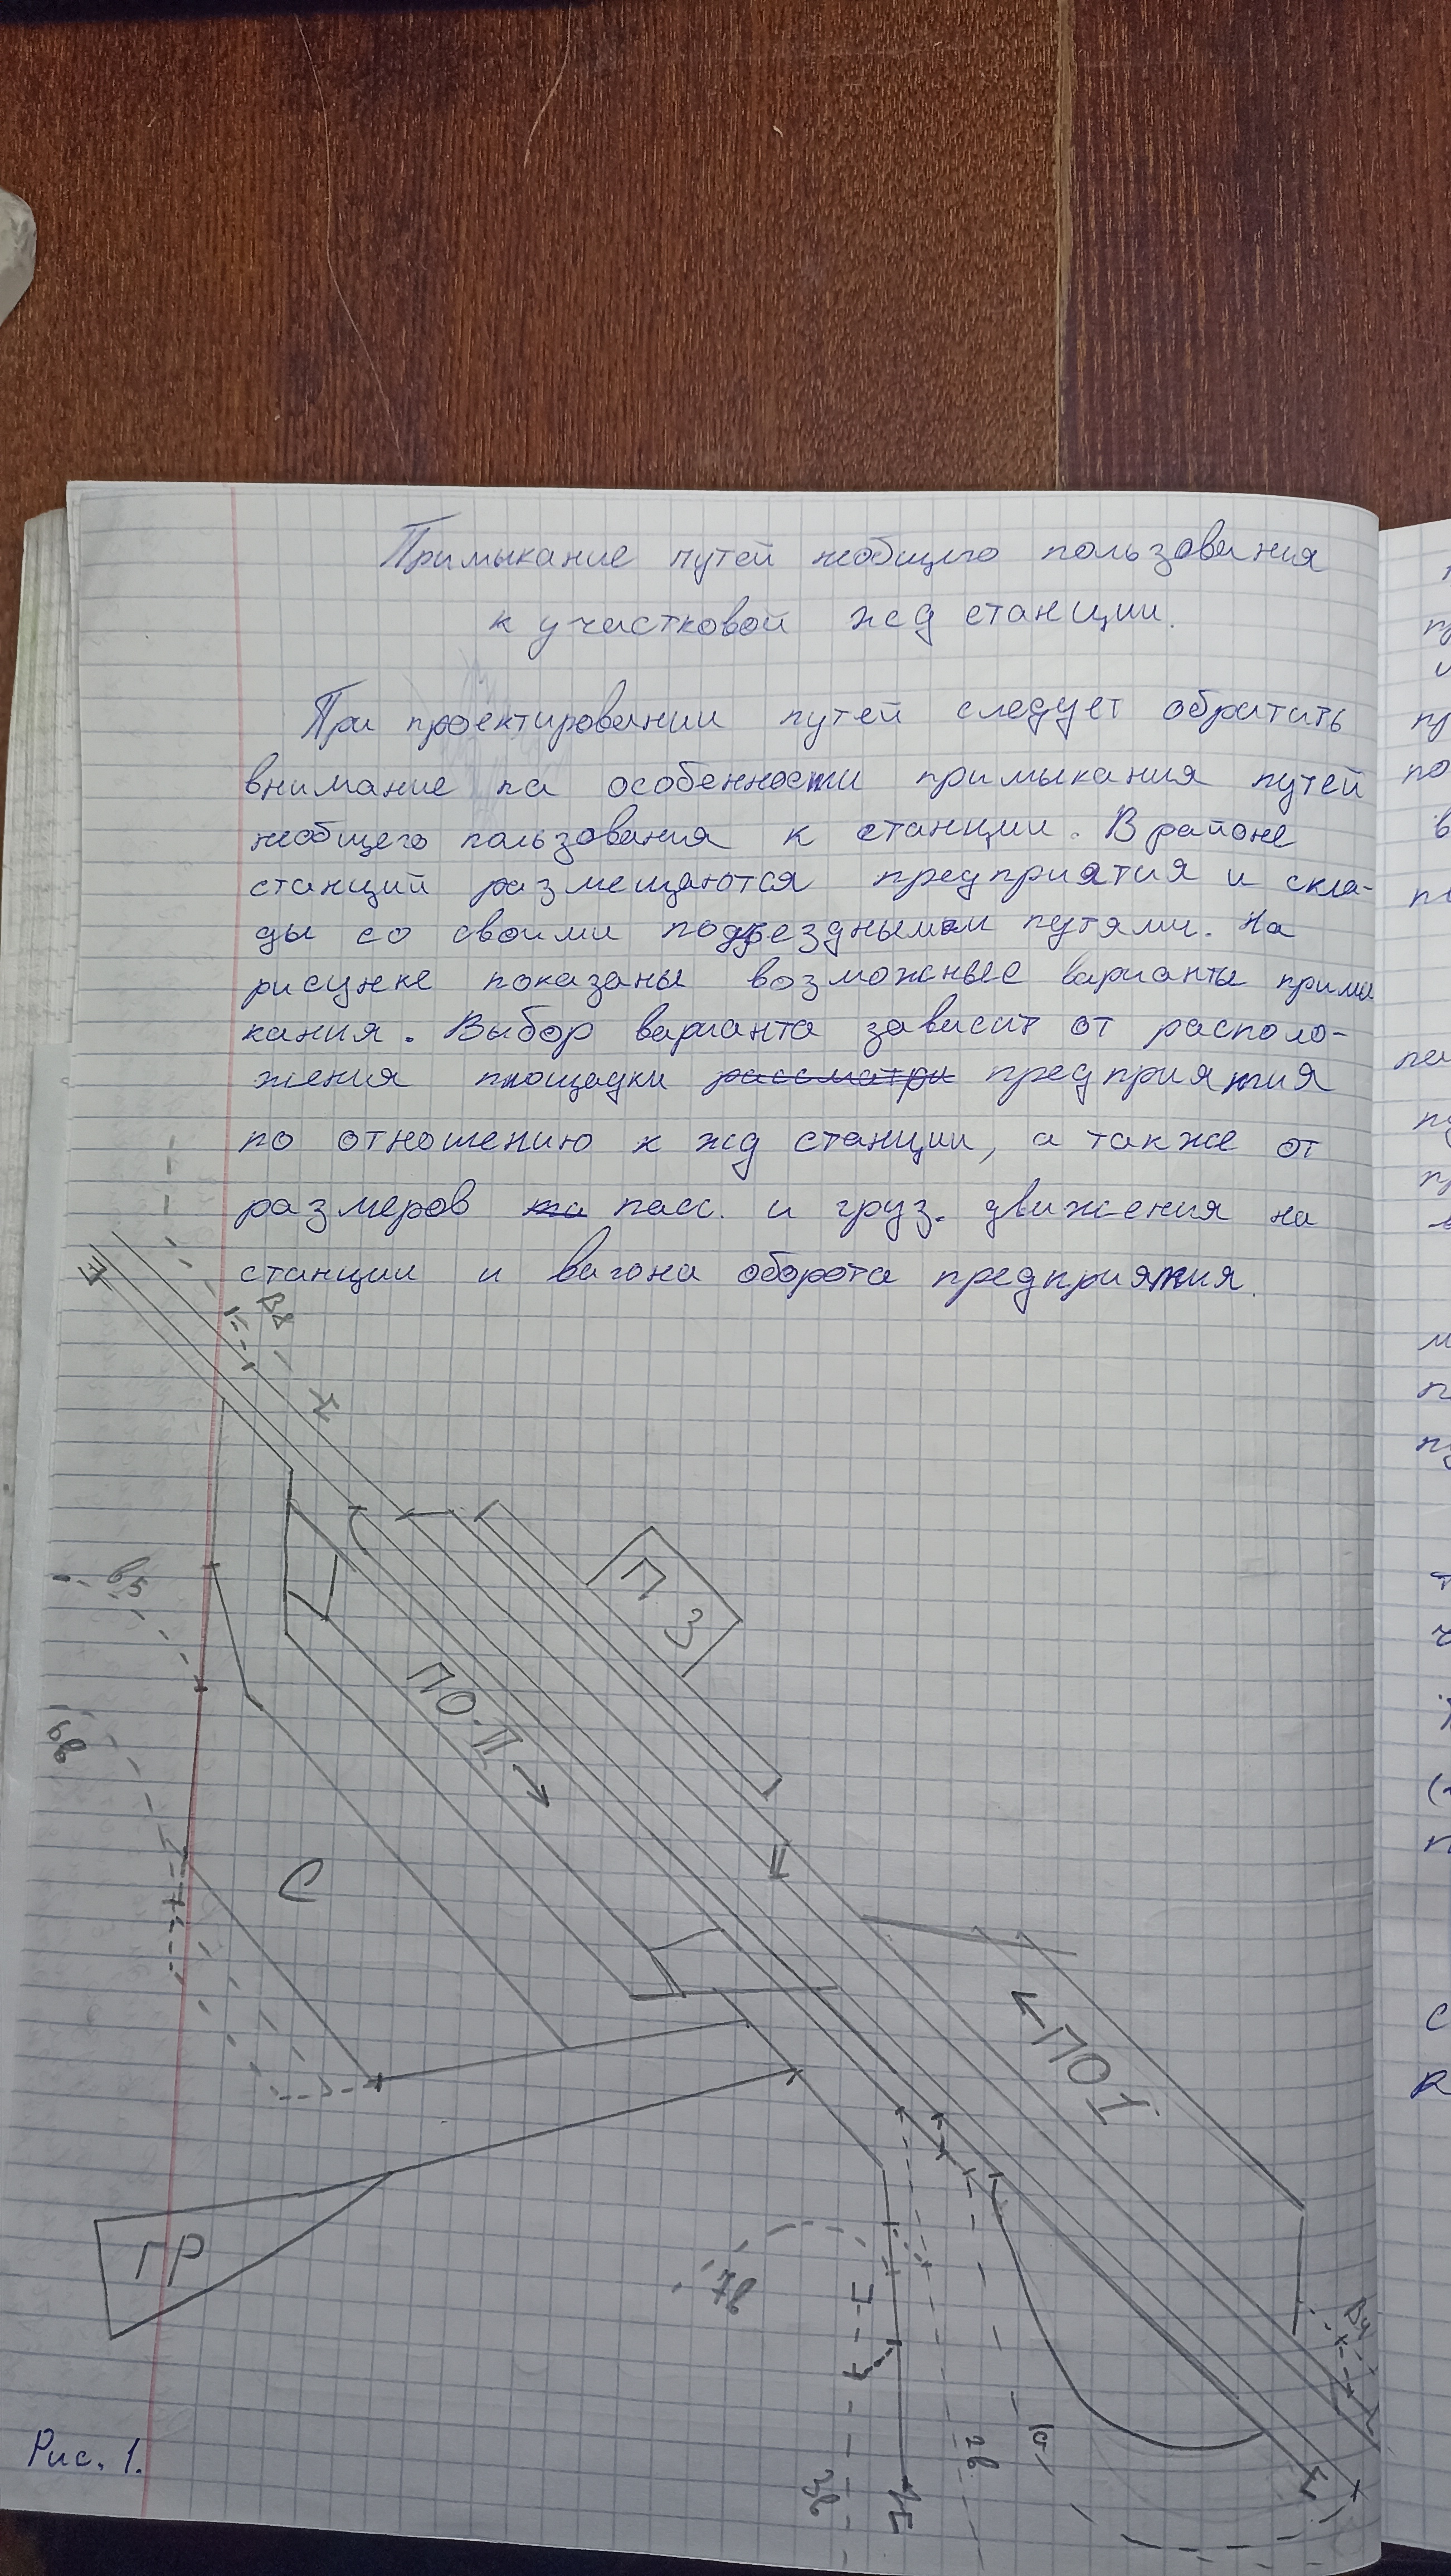 Примыкание путей необщего пользования
к участковой жд станции.
При проектировании путей следует обратить
внимание на особенности примыкания путей
необщего пользования к станции. В районе
станций размещаются предприятия и скла-
ды со своими подъездными путями. На
рисунке показаны возможные варианты примы
кания. Выбор варианта зависит от располо-
жения площадки предприятия
по отношению к жд станции, а также от
размеров пасс. и груз. движения на
станции и вагона оборота предприятия.
В8
К
П З
в5
ПО-II →
6в
С
← ПО I
ГР
7в
В4
2в
3в
Рис. 1.